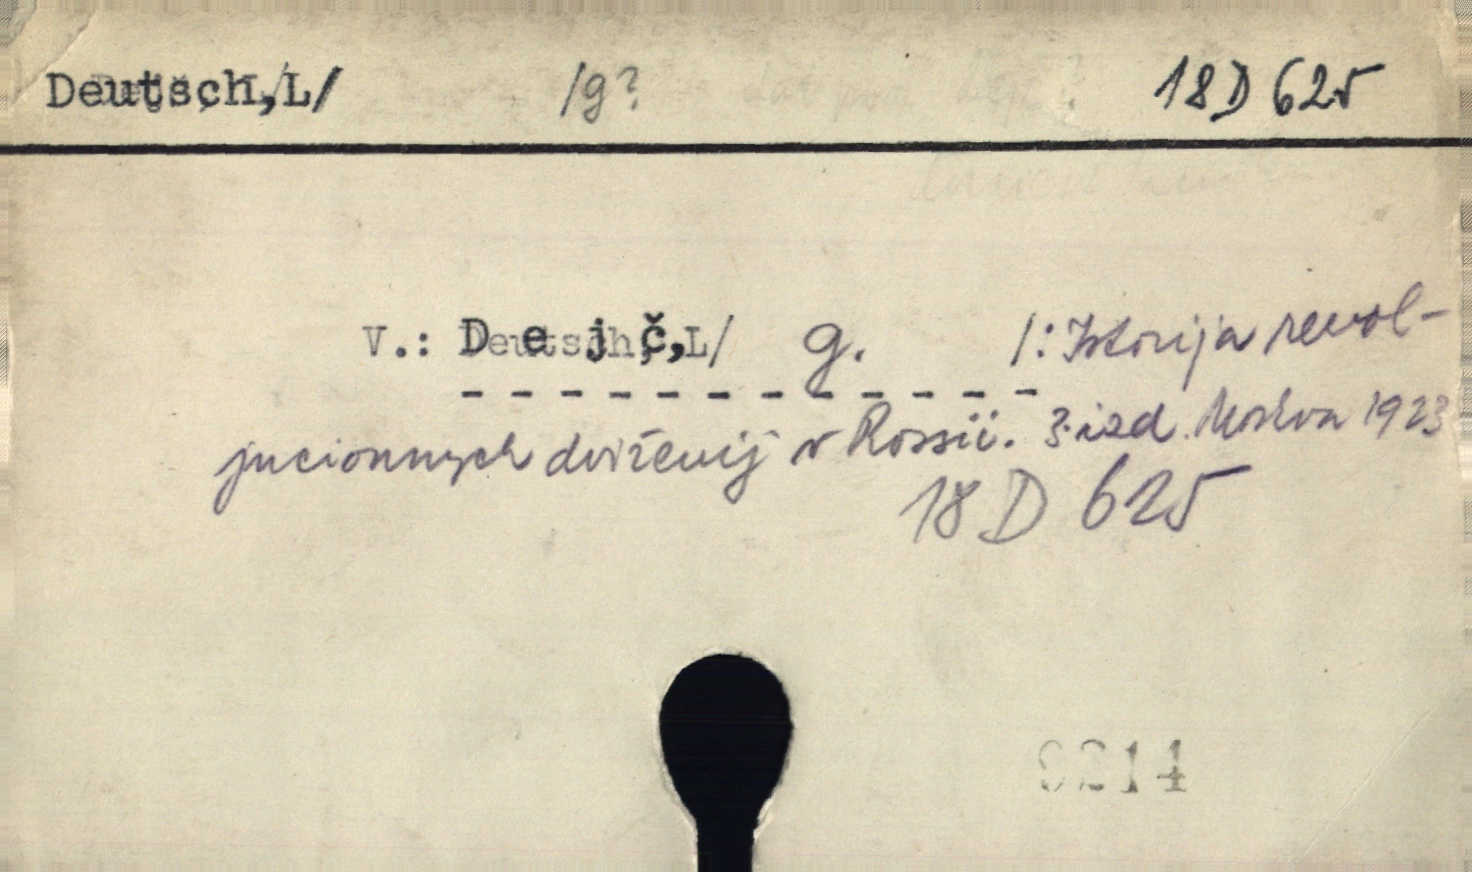 Deutsch,L/ /g? 18 D 625
V.: D e j č,L/ g. /: Istorija revol-
jucionnych dviženij v Rossii. 3. izd. Moskva 1923
18 D 625
9214